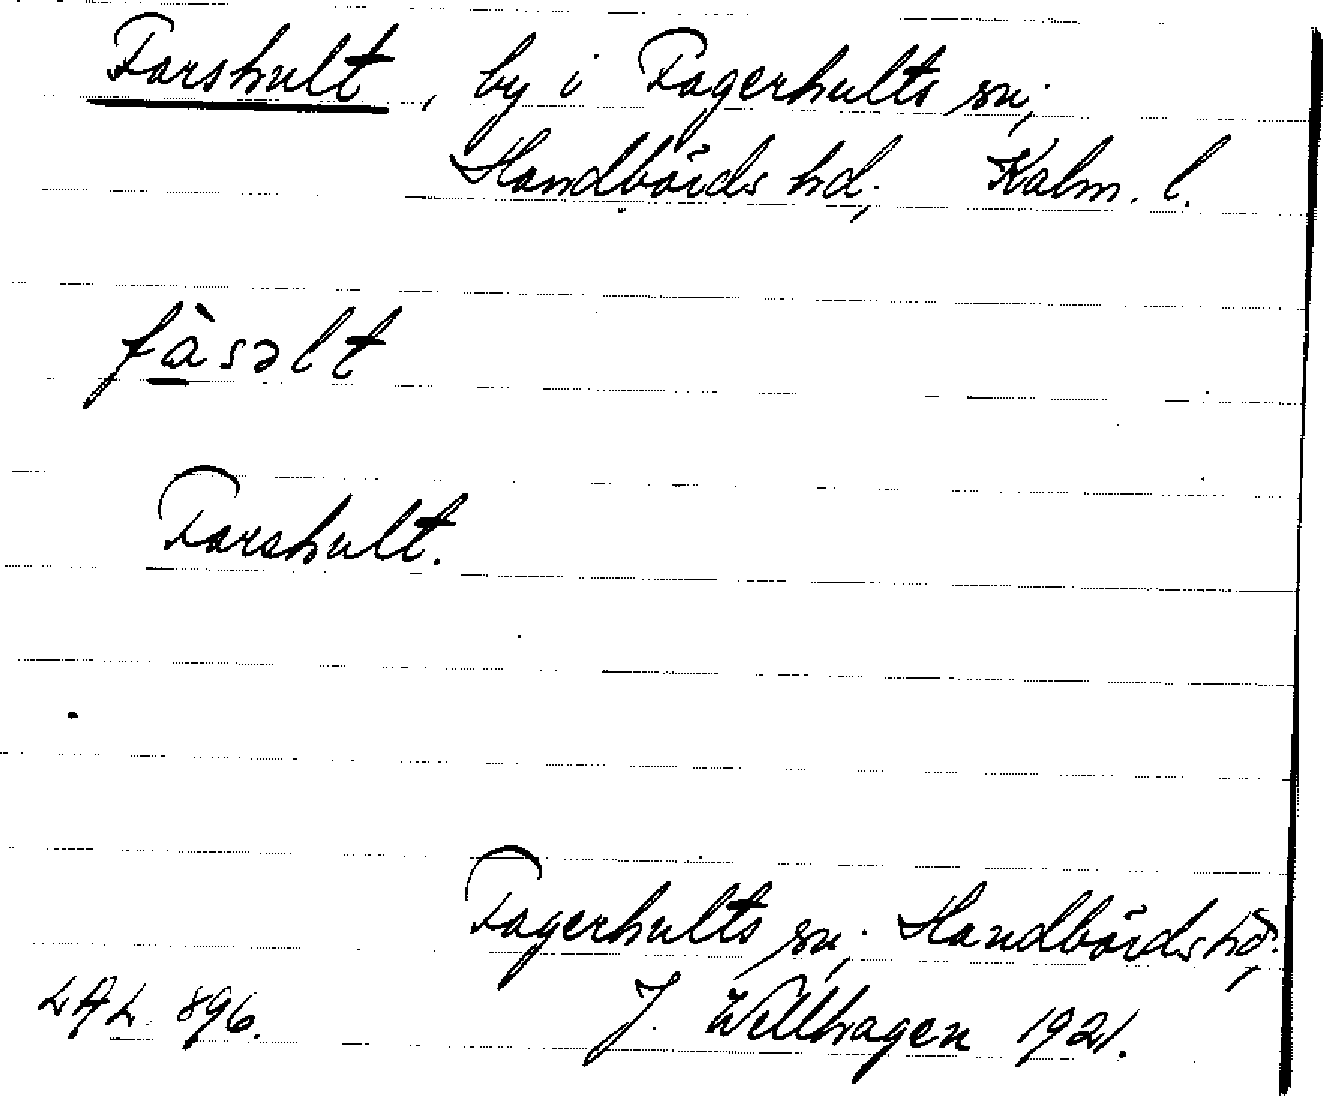 Farshult, by i Fagerhults sn;
Handbörds hd; Kalm. l.
fàsəlt
Farshult.
Fagerhults sn; Handbörds hd;
LAL 896. J. Willhagen 1921.